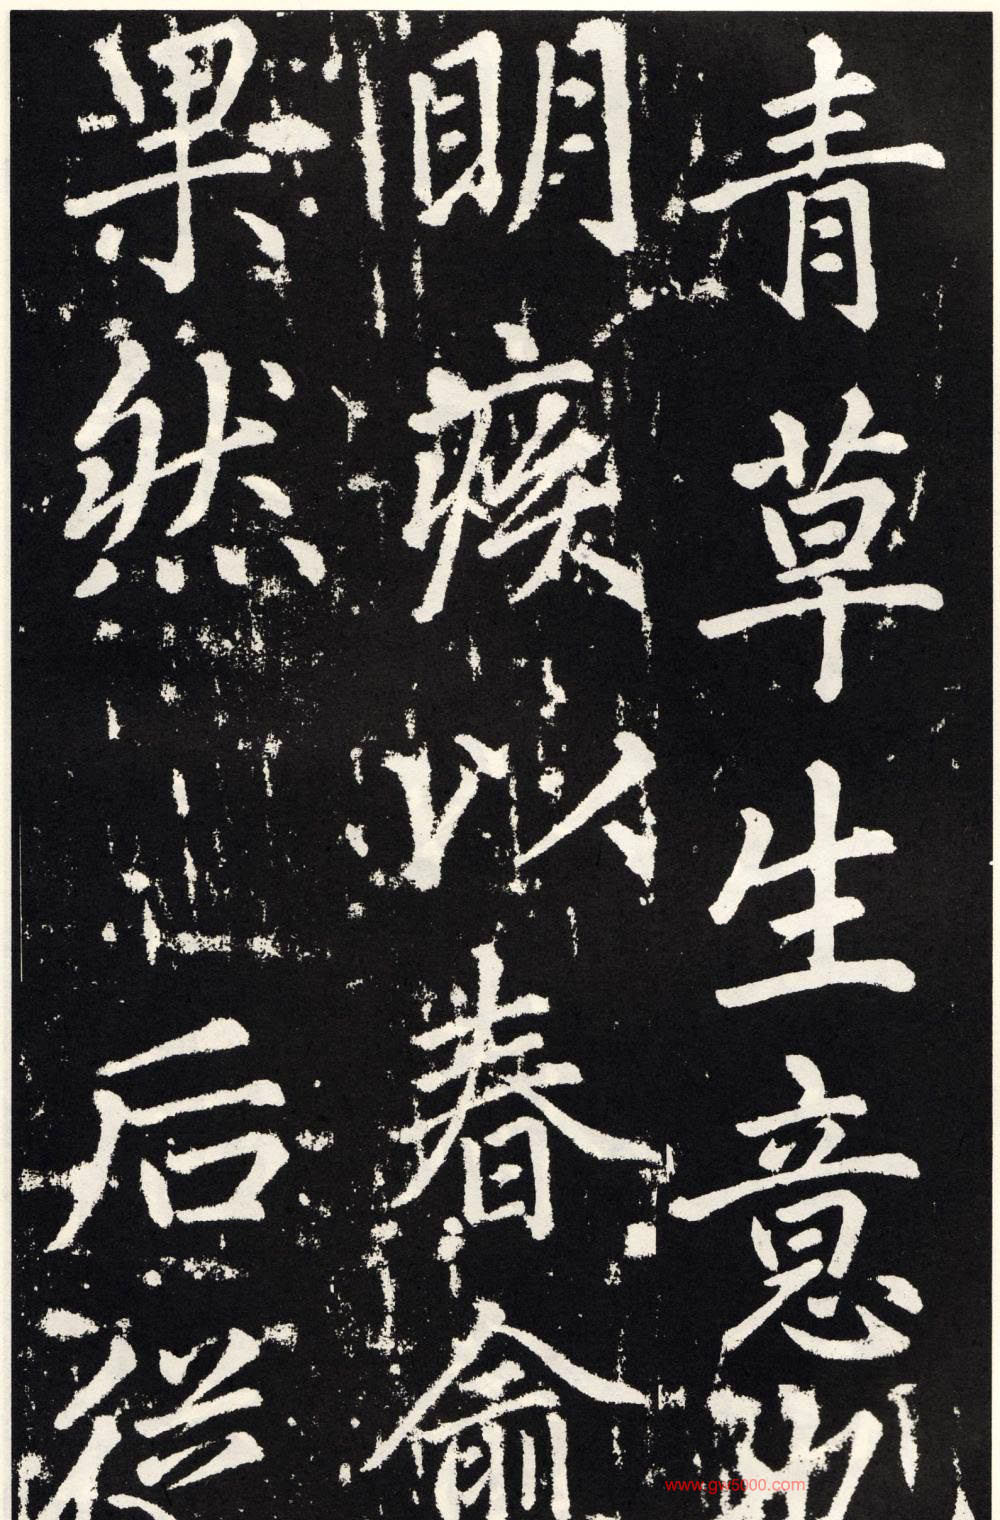 青草生意
明疾以春俞
果然后從
www.gw5000.com